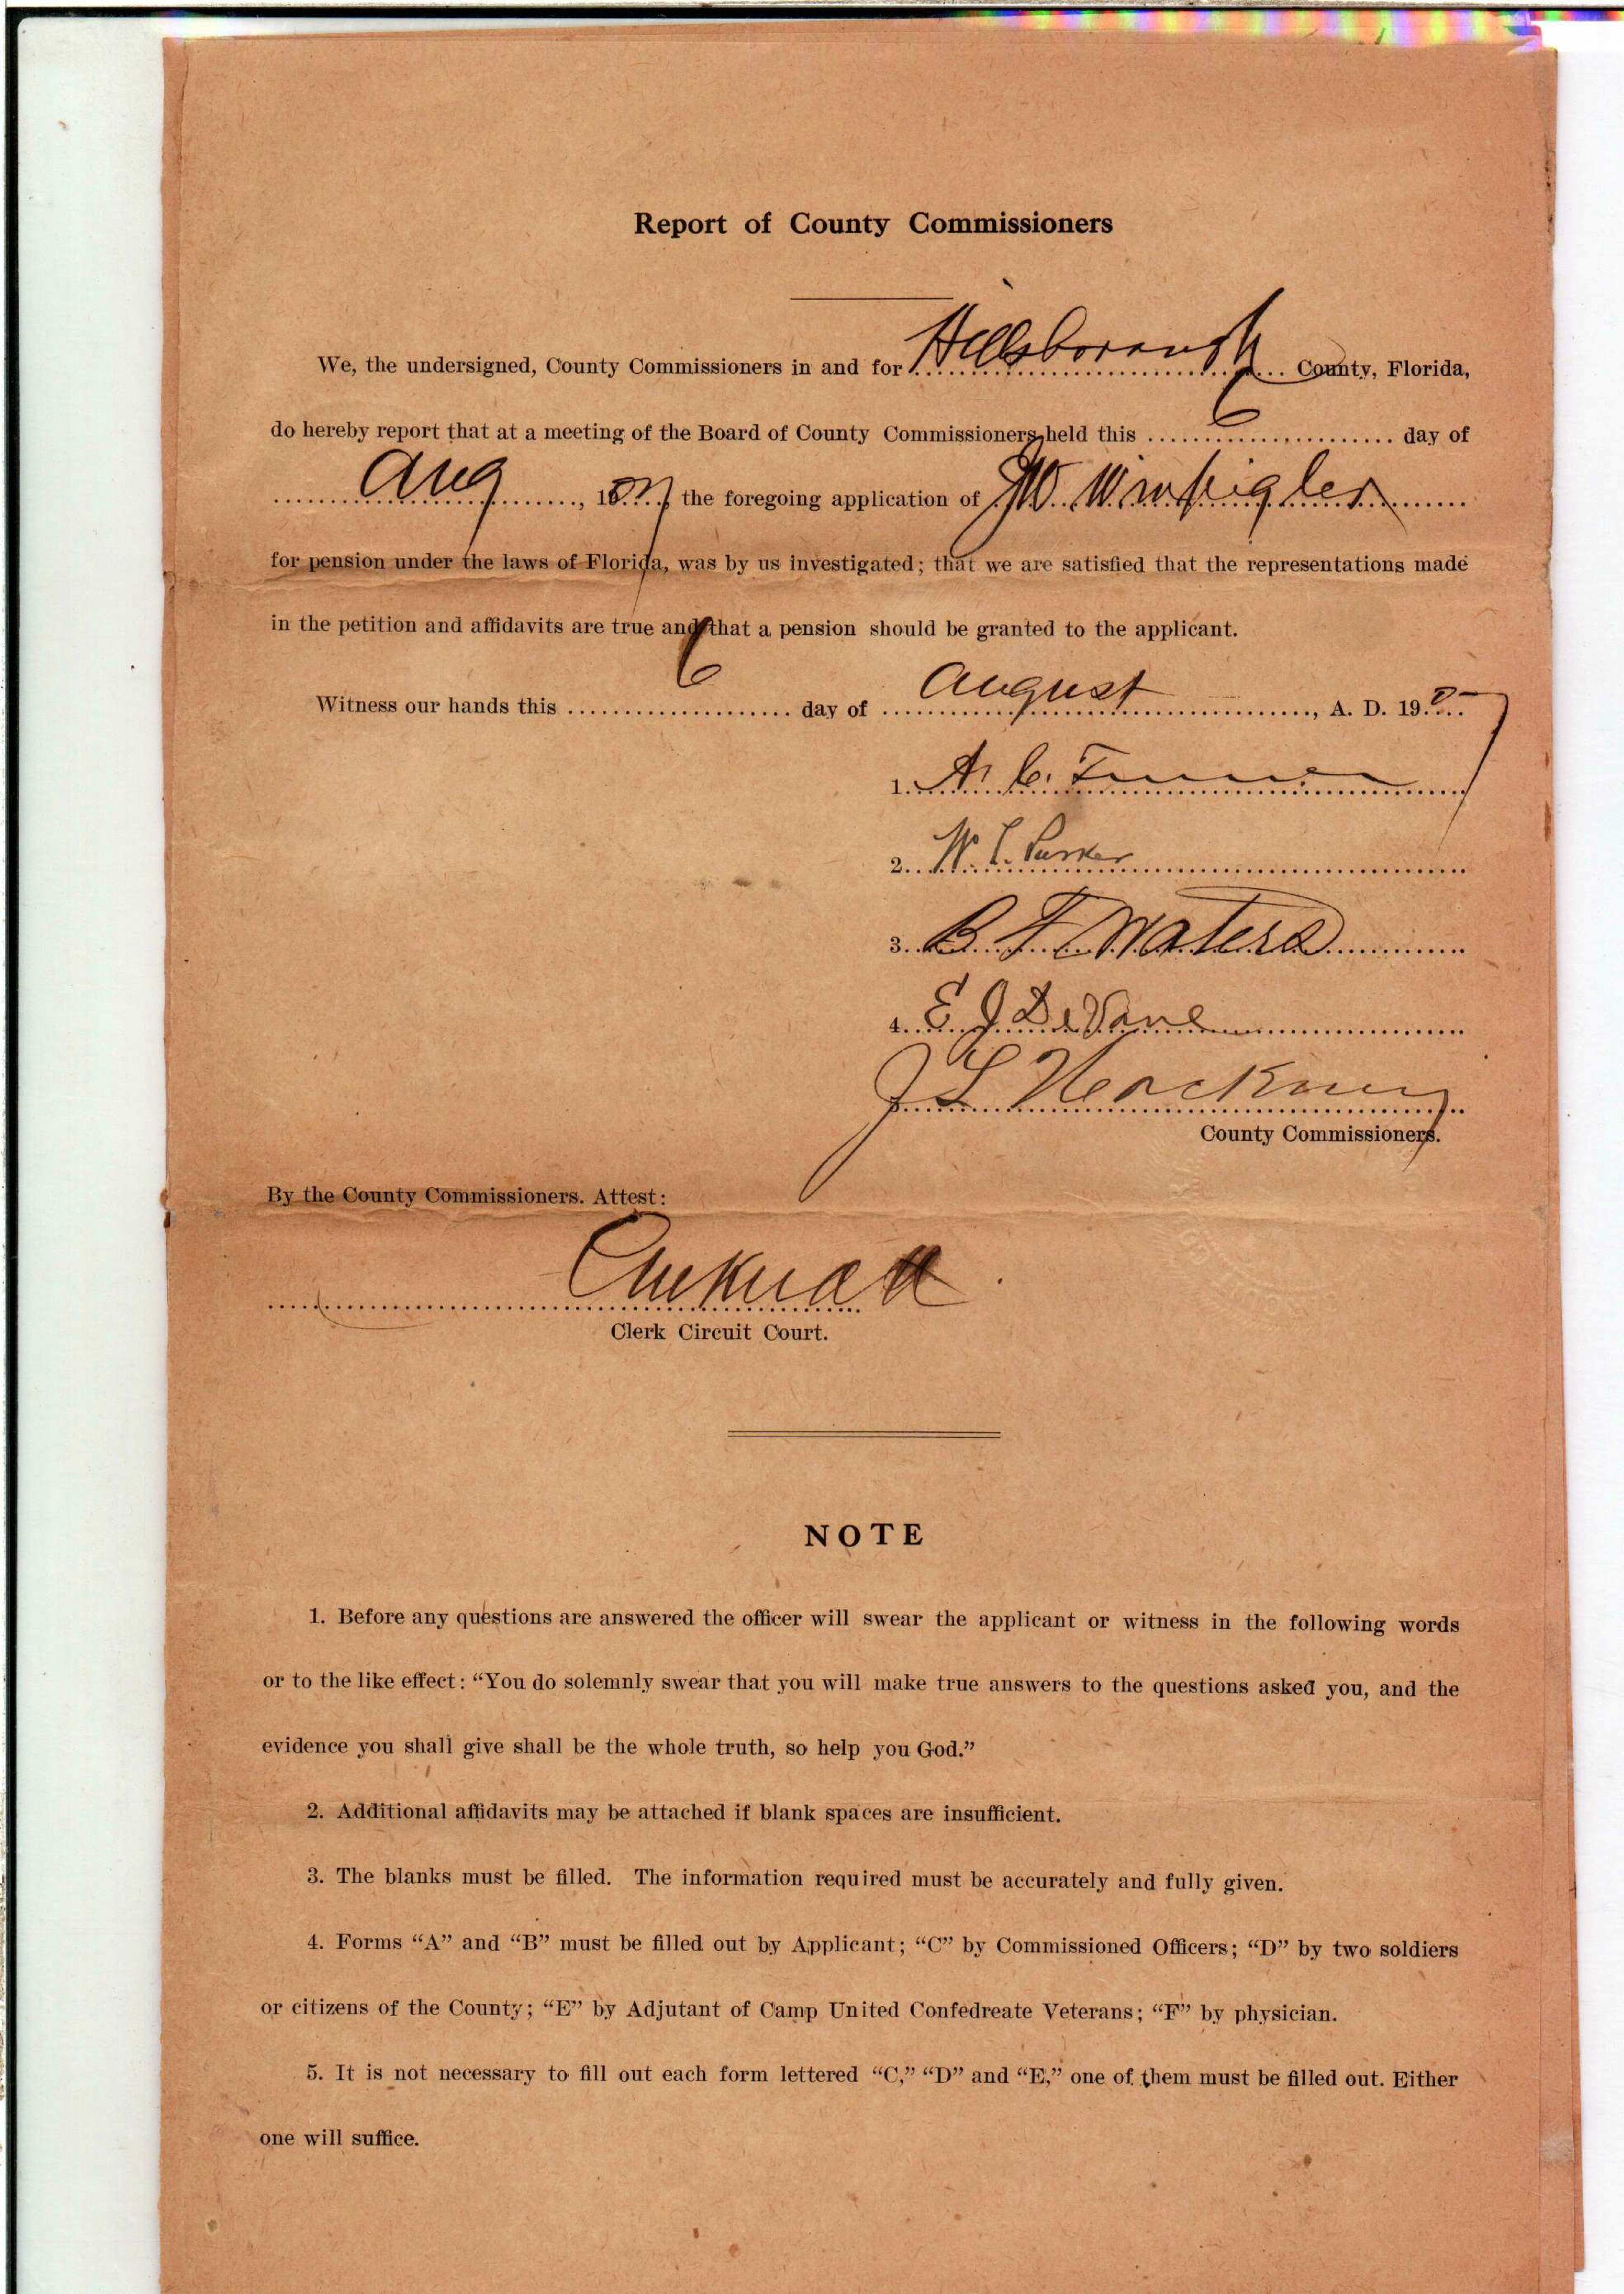 Report of County Commissioners
We, the undersigned, County Commissioners in and for Hillsborough County, Florida,
do hereby report that at a meeting of the Board of County Commissioners, held this 6 day of
Aug, 1907 the foregoing application of W. Winfrigler
for pension under the laws of Florida, was by us investigated; that we are satisfied that the representations made
in the petition and affidavits are true and that a pension should be granted to the applicant.
Witness our hands this 6 day of August, A. D. 1907
1. A. C.
2. W. T. Parker
3. B. F. Waters
4. E J DeVane
J L
County Commissioners.
By the County Commissioners. Attest:
Clerk Circuit Court.
NOTE
1. Before any questions are answered the officer will swear the applicant or witness in the following words
or to the like effect: “You do solemnly swear that you will make true answers to the questions asked you, and the
evidence you shall give shall be the whole truth, so help you God.”
2. Additional affidavits may be attached if blank spaces are insufficient.
3. The blanks must be filled. The information required must be accurately and fully given.
4. Forms “A” and “B” must be filled out by Applicant; “C” by Commissioned Officers; “D” by two soldiers
or citizens of the County; “E” by Adjutant of Camp United Confedreate Veterans; “F” by physician.
5. It is not necessary to fill out each form lettered “C,” “D” and “E,” one of them must be filled out. Either
one will suffice.